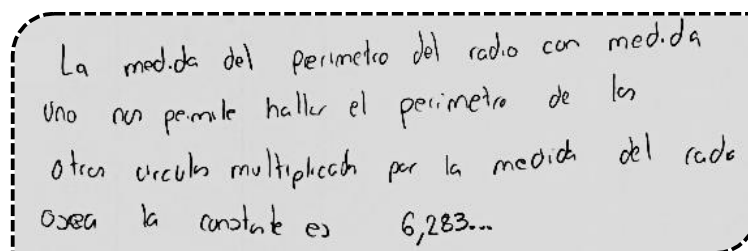 La medida del perimetro del radio con medida
Uno nos permite hallar el perimetro de los
otros circulos multiplicado por la medida del radio
osea la constante es 6,283...